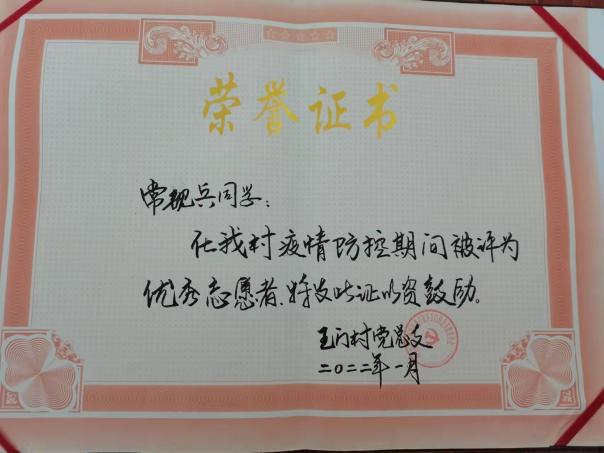 荣誉证书
常现兵同学:
在我村疫情防控期间被评为
优秀志愿者、特发此证以资鼓励。
王门村党总支
二〇二二年一月